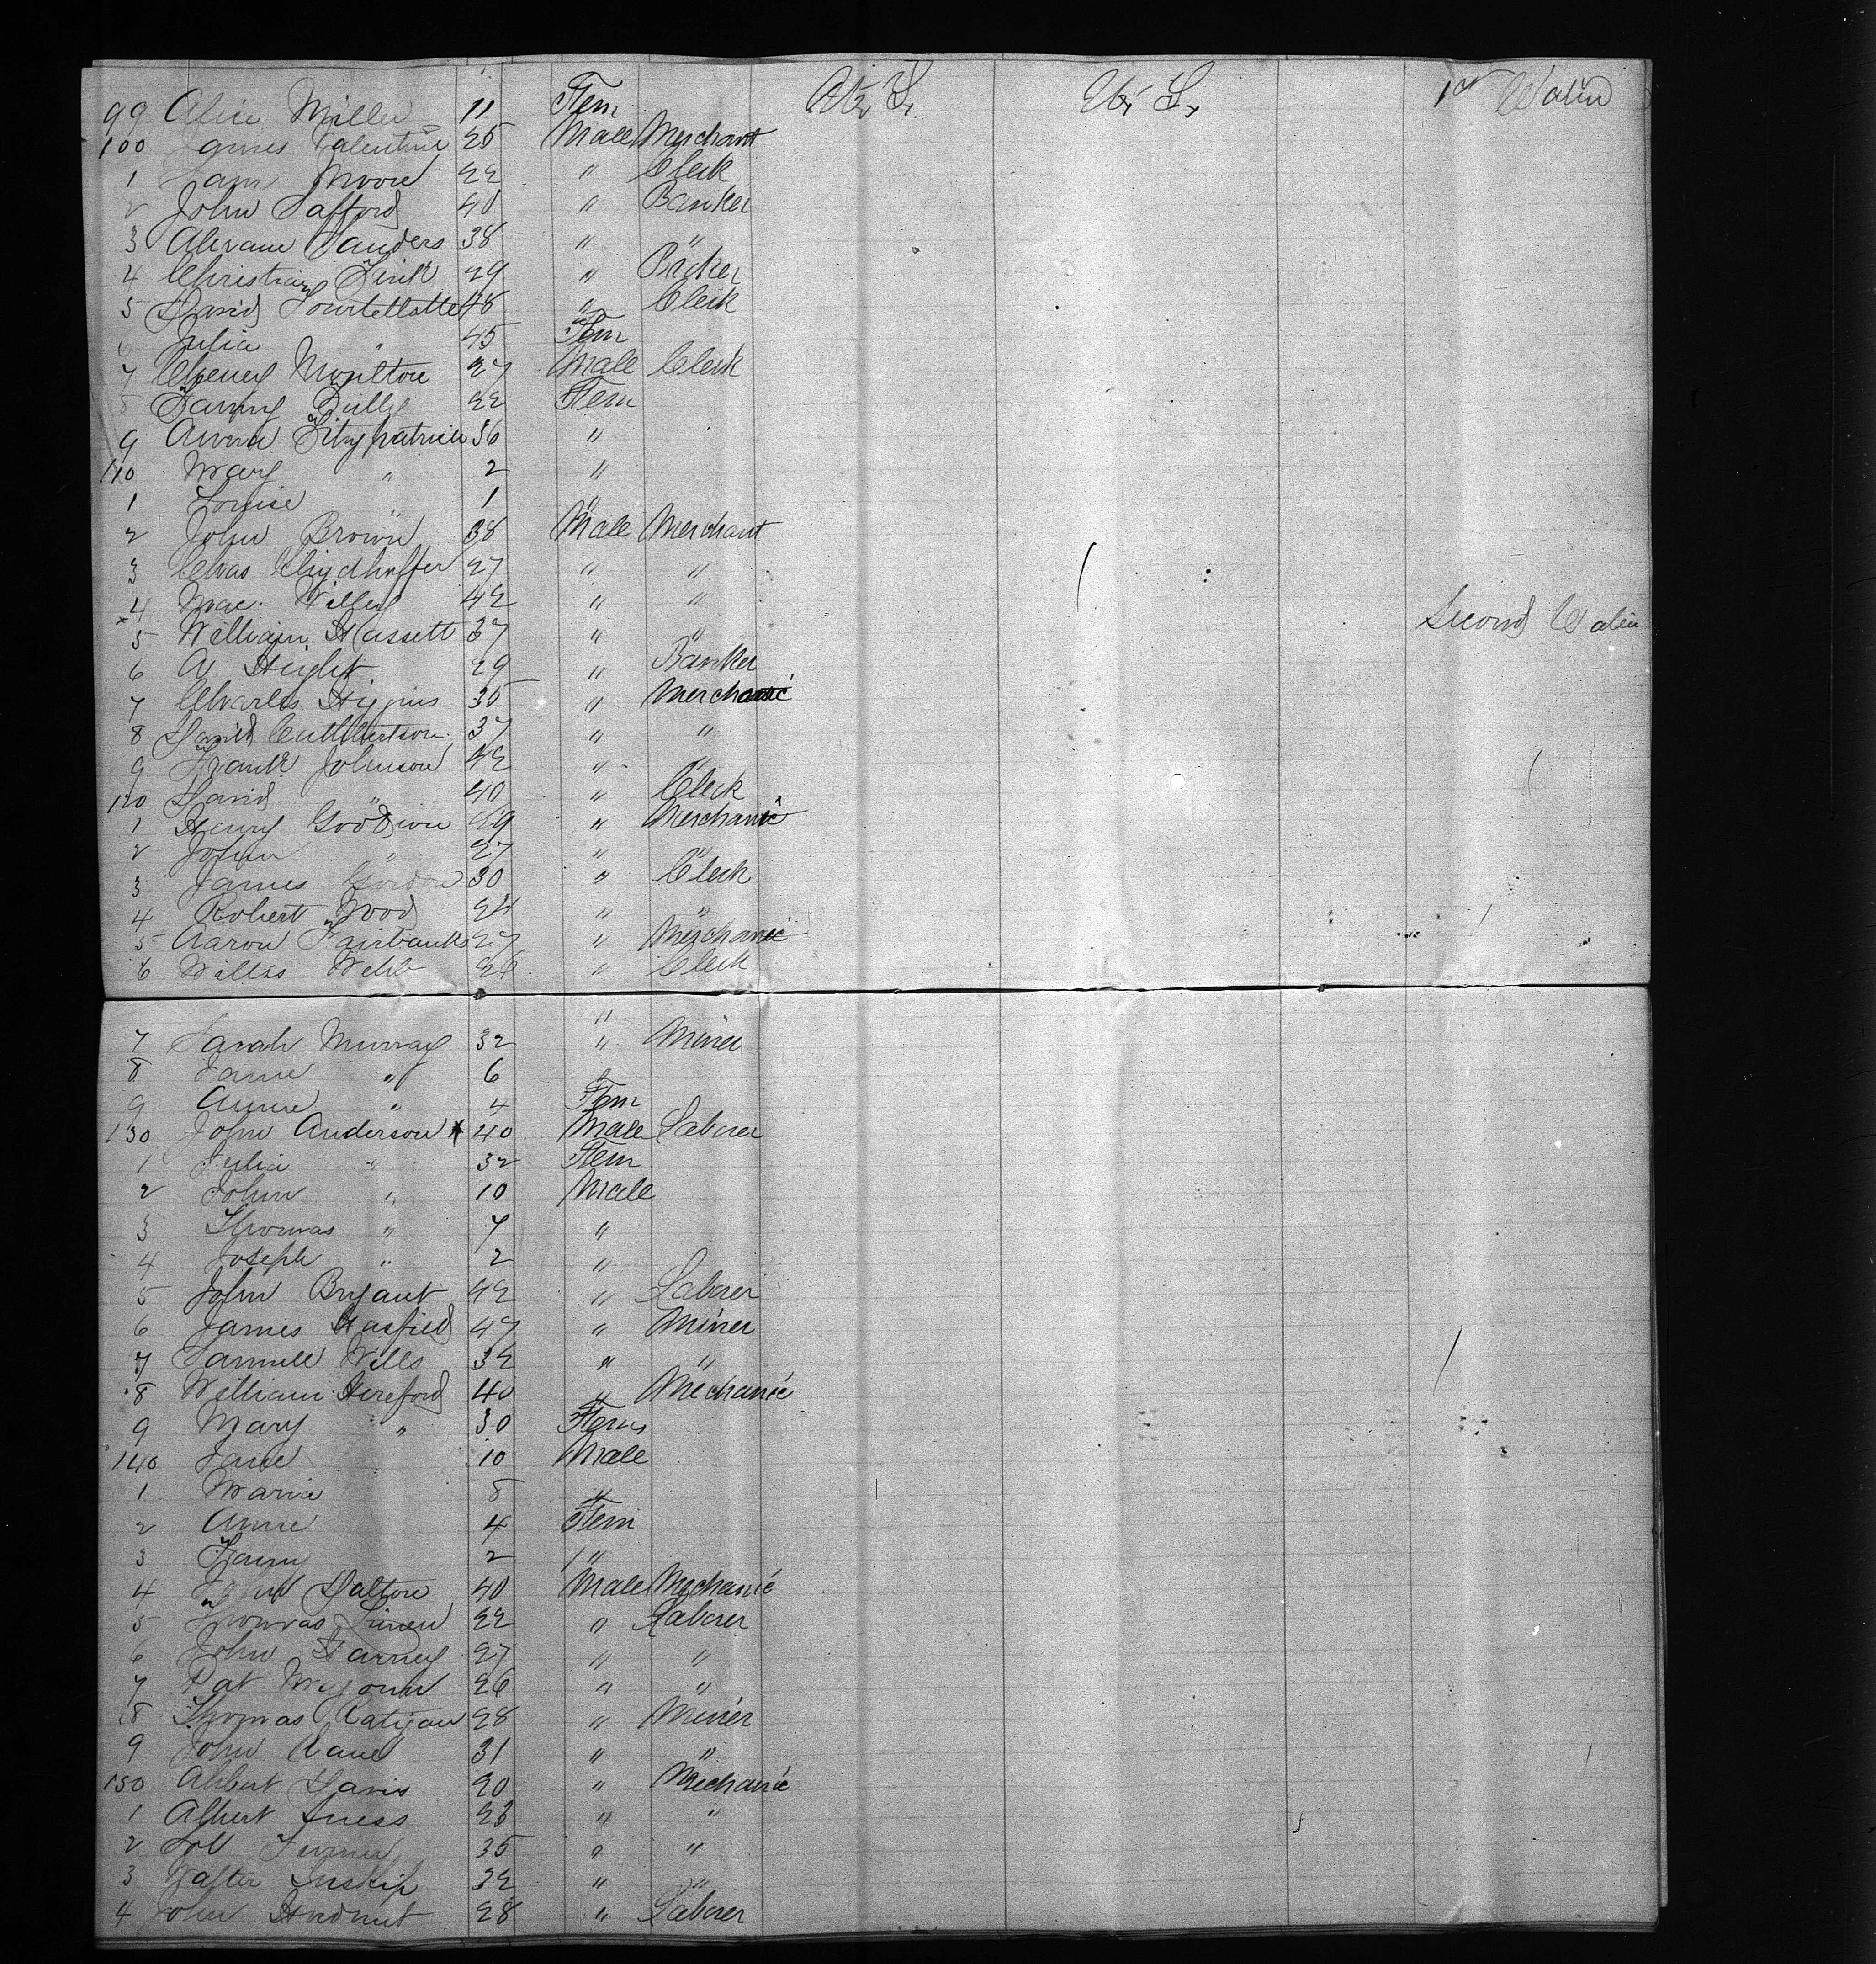 99 Alice Miller 11 Fem U.S. U.S. 1st Cabin
100 James Valentine 25 Male Merchant
1 Sam Moore 22 " Clerk
2 John Safford 40 " Banker
3 Sanders 38 " "
4 Christian Fink 29 " Baker
5 David Tourtellotte 48 " Clerk
6 Julia " 45 Fem
7 Cheney Moulton 27 Male Clerk
8 Fanny Bally 22 Fem
9 Anna Fitzpatrick 36 "
110 Mary " 2 "
1 Louise " 1 "
2 John Brown 38 Male Merchant
3 Chas 27 " "
4 Mac. Willey 42 " "
5 William Hassett 37 " " Second Cabin
6 A Height 29 " Banker
7 Charles Higgins 35 " Mechanic
8 David Cuthbertson 37 " "
9 Frank Johnson 42 " "
120 David " 40 " Clerk
1 Henry Goodwin 29 " Mechanic
2 John " 27 " "
3 James Gordon 30 " Clerk
4 Robert Wood 24 " "
5 Aaron Fairbanks 27 " Mechanic
6 Willis Webb 26 " Clerk
"
7 Sarah Murray 32 " Miner
8 Jane " 6 "
9 Annie " 4 Fem
130 John Anderson 40 Male Laborer
1 Julia " 32 Fem
2 John " 10 Male
3 Thomas " 7 "
4 Joseph " 2 "
5 John Bryant 42 " Laborer
6 James Hasfield 47 " Miner
7 Samuel Wills 32 " "
8 William Hereford 40 " Mechanic
9 Mary " 30 Fem
140 Jane 10 Male
1 Maria 8 "
2 Annie 4 Fem
3 Fann 2 "
4 Dalton 40 Male Mechanic
5 Thomas Linen 22 " Laborer
6 John Harney 27 " "
7 Pat 26 " "
8 Thomas Ratigan 28 " Miner
9 John Kane 31 " "
150 Albert Davis 20 " Mechanic
1 Albert 23 " "
2 35 " "
3 Walter Inskip 32 " "
4 John Hudnut 28 " Laborer